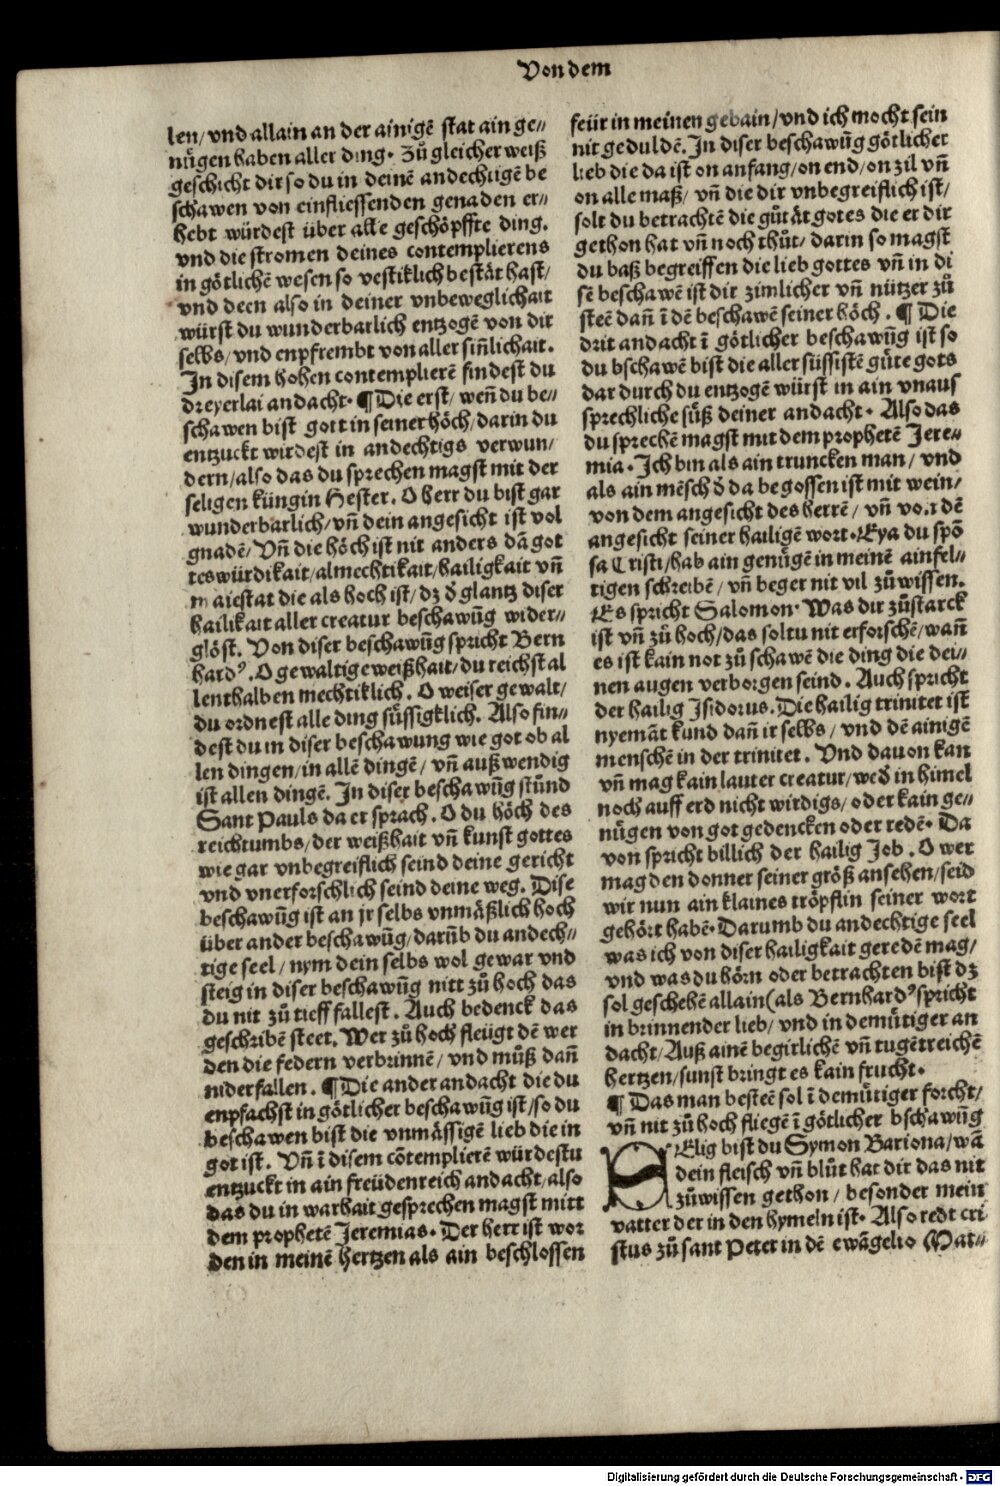 Von dem
len/ vnd allain an der ainigē stat ain ge⸗
nügen haben aller ding. Zů gleicher weiß
geschicht dir so du in deinē andechtigē be
schawen von einfliessenden genaden er⸗
hebt würdest über alle geschöpffte ding.
vnd die stromen deines contemplierens
in götlichē wesen so vestiklich bestät hast/
vnd deen also in deiner vnbeweglichait
würst du wunderbarlich entzogē von dir
selbs/ vnd enpfrembt von aller siñlichait.
In disem hohen contemplierē findest du
dreyerlai andacht. ¶ Die erst/ weñ du be⸗
schawen bist gott in seiner höch/ darin du
entzuckt wirdest in andechtigs verwun/
dern/ also das du sprechen magst mit der
seligen küngin Hester. O herr du bist gar
wunderbarlich/ vñ dein angesicht ist vol
gnadē/ Vñ die höch ist nit anders dā got
tes würdikait/ almechtikait/ hailigkait vñ
maiestat die als hoch ist/ dz ð glantz diser
hailikait aller creatur beschawūg wider⸗
glöst. Von diser beschawūg spricht Bern
hardꝰ. O gewaltige weißhait/ du reichst al
lenthalben mechtiklich. O weiser gewalt/
du ordnest alle ding süssigklich. Also fin⸗
dest du in diser beschawung wie got ob al
len dingen/ in allē dingē/ vñ außwendig
ist allen dingē. In diser beschawūg stůnd
Sant Pauls da er sprach. O du höch des
reichtumbs/ der weißhait vñ kunst gottes
wie gar vnbegreiflich seind deine gericht
vnd vnerforschlich seind deine weg. Dise
beschawūg ist an jr selbs vnmäßlich hoch
über ander beschawūg/ darūb du andech⸗
tige seel/ nym dein selbs wol gewar vnd
steig in diser beschawūg nitt zů hoch das
du nit zů tieff fallest. Auch bedenck das
geschribē steet. Wer zů hoch fleügt dē wer
den die federn verbrinnē/ vnd můß dañ
niderfallen. ¶ Die ander andacht die du
enpfachst in götlicher beschawūg ist/ so du
beschawen bist die vnmässigē lieb die in
got ist. Vñ ī disem cōtemplierē würdestu
entzuckt in ain freüdenreich andacht/ also
das du in warhait gesprechen magst mitt
dem prophetē Jeremias. Der herr ist wor
den in meinē hertzen als ain beschlossen
feür in meinen gebain/ vnd ich mocht sein
nit geduldē. In diser beschawūg götlicher
lieb die da ist on anfang/ on end/ on zil vñ
on alle maß/ vñ die dir vnbegreiflich ist/
solt du betrachtē die gůtät gotes die er dir
gethon hat vñ noch thůt/ darin so magst
du baß begreiffen die lieb gottes vñ in di
sē beschawē ist dir zimlicher vñ nützer zů
steē dañ ī dē beschawē seiner höch. ¶ Die
drit andacht ī götlicher beschawūg ist so
du bschawē bist die aller süssistē güte gots
dar durch du entzogē würst in ain vnaus
sprechliche süß deiner andacht. Also das
du sprechē magst mit dem prophetē Jere⸗
mia. Ich bin als ain truncken man/ vnd
als ain mēsch ð da begossen ist mit wein/
von dem angesicht des herrē/ vñ von dē
angesicht seiner hailigē wort. Eya du spō
sa Cristi/ hab ain genügē in meinē ainfel⸗
tigen schreibē/ vñ beger nit vil zů wissen.
Es spricht Salomon. Was dir zů starck
ist vñ zů hoch/ das soltu nit erforschē/ wañ
es ist kain not zů schawē die ding die dei⸗
nen augen verborgen seind. Auch spricht
der hailig Isidorus. Die hailig trinitet ist
nyemāt kund dañ ir selbs/ vnd dē ainigē
menschē in der trinitet. Vnd dauon kan
vñ mag kain lauter creatur/ weð in himel
noch auff erd nicht wirdigs/ oder kain ge⸗
nügen von got gedencken oder redē. Da
von spricht billich der hailig Job. O wer
mag den donner seiner größ ansehen/ seid
wir nun ain klaines tröpflin seiner wort
gehört habē. Darumb du andechtige seel
was ich von diser hailigkait geredē mag/
vnd was du hörn oder betrachten bist dz
sol geschehē allain (als Bernhardꝰ spricht
in brinnender lieb/ vnd in demütiger an
dacht/ Auß ainē begirlichē vñ tugētreichē
hertzen/ sunst bringt es kain frucht.
¶ Das man besteē sol ī demütiger forcht/
vñ nit zů hoch fliegē ī götlicher bschawūg
SElig bist du Symon Bariona/ wā
dein fleisch vñ blůt hat dir das nit
zů wissen gethon/ besonder mein
vatter der in den hymeln ist. Also redt cri
stus zů sant Peter in dē ewāgelio Mat⸗
Digitalisierung gefördert durch die Deutsche Forschungsgemeinschaft - DFG